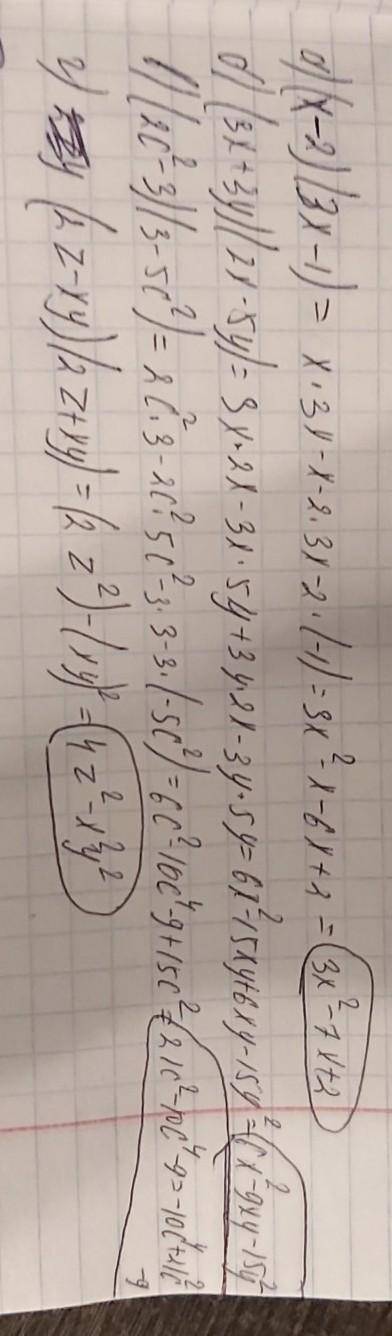 а) (x-2)(3x-1) = x·3x-x-2·3x-2·(-1) = 3x²-x-6x+2 = 3x²-7x+2
б) (3x+3y)(2x-5y) = 3x·2x-3x·5y+3y·2x-3y·5y = 6x²-15xy+6xy-15y² = 6x²-9xy-15y²
в) (2c²-3)(3-5c²) = 2c²·3-2c²·5c²-3·3-3·(-5c²) = 6c²-10c⁴-9+15c² = 21c²-10c⁴-9 = -10c⁴+21c²
-9
г) (2z-xy)(2z+xy) = (2z²)-(xy)² = 4z²-x²y²